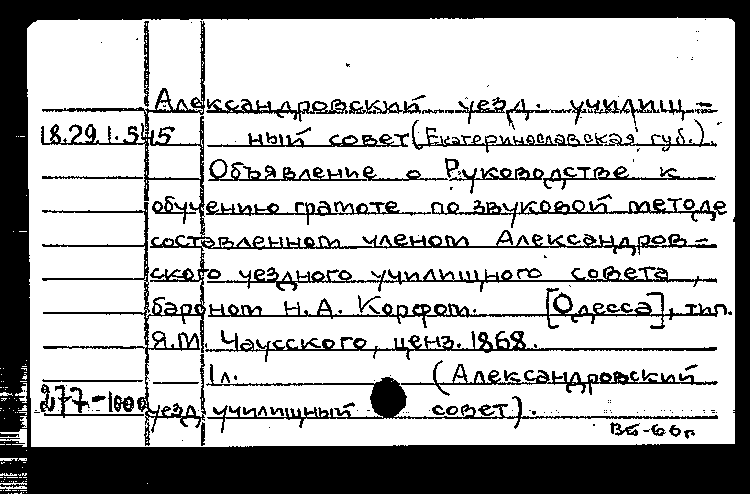 Александровский уезд. училищ=
18.29.1.545 ный совет (Екатеринославская губ.).
Объявление о Руководстве к
обучению грамоте по звуковой методе,
составленном членом Александров=
ского уездного училищного совета,
бароном Н. А. Корфом. [Одесса], тип.
Я.М. Чаусского, ценз. 1868.
1л. (Александровский
277-1000 уезд. училищный совет).
ВБ-66г